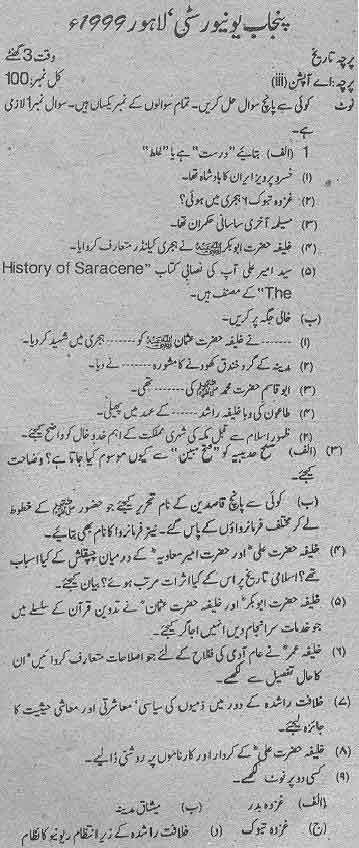 پنجاب یونیورسٹی، لاہور 1999ء
پرچہ تاریخ
وقت 3 گھنٹے
پرچہ: اے آپشن (iii)
کل نمبر: 100
نوٹ کوئی سے پانچ سوال حل کریں۔ تمام سوالوں کے نمبر یکساں ہیں۔ سوال نمبر 1 لازمی
ہے۔
1 (الف) بتایئے "درست" ہے یا "غلط"
(۱) خسرو پرویز ایران کا بادشاہ تھا۔
(۲) غزوہ تبوک ۶ ہجری میں ہوئی؟
(۳) مسیلمہ آخری ساسانی حکمران تھا۔
(۴) خلیفہ حضرت ابوبکرؓ نے ہجری کیلنڈر متعارف کروایا۔
(۵) سید امیر علی آپ کی نصابی کتاب "History of Saracene
The" کے مصنف ہیں۔
(ب) خالی جگہ پر کریں۔
(۱) ------- نے خلیفہ حضرت عثمانؓ کو ------- ہجری میں شہید کر دیا۔
(۲) مدینہ کے گرد خندق کھودنے کا مشورہ ------- نے دیا۔
(۳) ابو قاسم حضرت محمد ﷺ کی ------- تھی۔
(۴) طاعون کی وبا خلیفہ راشد ------- کے عہد میں پھیلی۔
(۲) ظہور اسلام سے قبل مکہ کی شہری مملکت کے اہم خدوخال کو واضح کیجئے۔
(۳) (الف) صلح حدیبیہ کو "فتح مبین" سے کیوں موسوم کیا جاتا ہے؟ وضاحت
کیجئے۔
(ب) کوئی سے پانچ قاصدین کے نام تحریر کیجئے جو حضور ﷺ کے خطوط
لے کر مختلف فرمانرواؤں کے پاس گئے۔ نیز فرمانروا کا نام بھی بتایئے۔
(۴) خلیفہ حضرت علیؓ اور حضرت امیر معاویہؓ کے درمیان چپقلش کے کیا اسباب
تھے؟ اسلامی تاریخ پر اس کے کیا اثرات مرتب ہوئے؟ بیان کیجئے۔
(۵) خلیفہ حضرت ابوبکرؓ اور خلیفہ حضرت عثمانؓ نے تدوین قرآن کے سلسلے میں
جو خدمات سرانجام دیں انہیں اجاگر کیجئے۔
(۶) خلیفہ عمرؓ نے عام آدمی کی فلاح کے لئے جو اصلاحات متعارف کروائیں ان
کا حال تفصیل سے لکھیے۔
(۷) خلافت راشدہ کے دور میں ذمیوں کی سیاسی، معاشرتی اور معاشی حیثیت کا
جائزہ لیجئے۔
(۸) خلیفہ حضرت علیؓ کے کردار اور کارناموں پر روشنی ڈالیے۔
(۹) کسی دو پر نوٹ لکھیے۔
(الف) غزوہ بدر (ب) میثاق مدینہ
(ج) غزوہ تبوک (د) خلافت راشدہ کے زیر انتظام ریونیو کا نظام